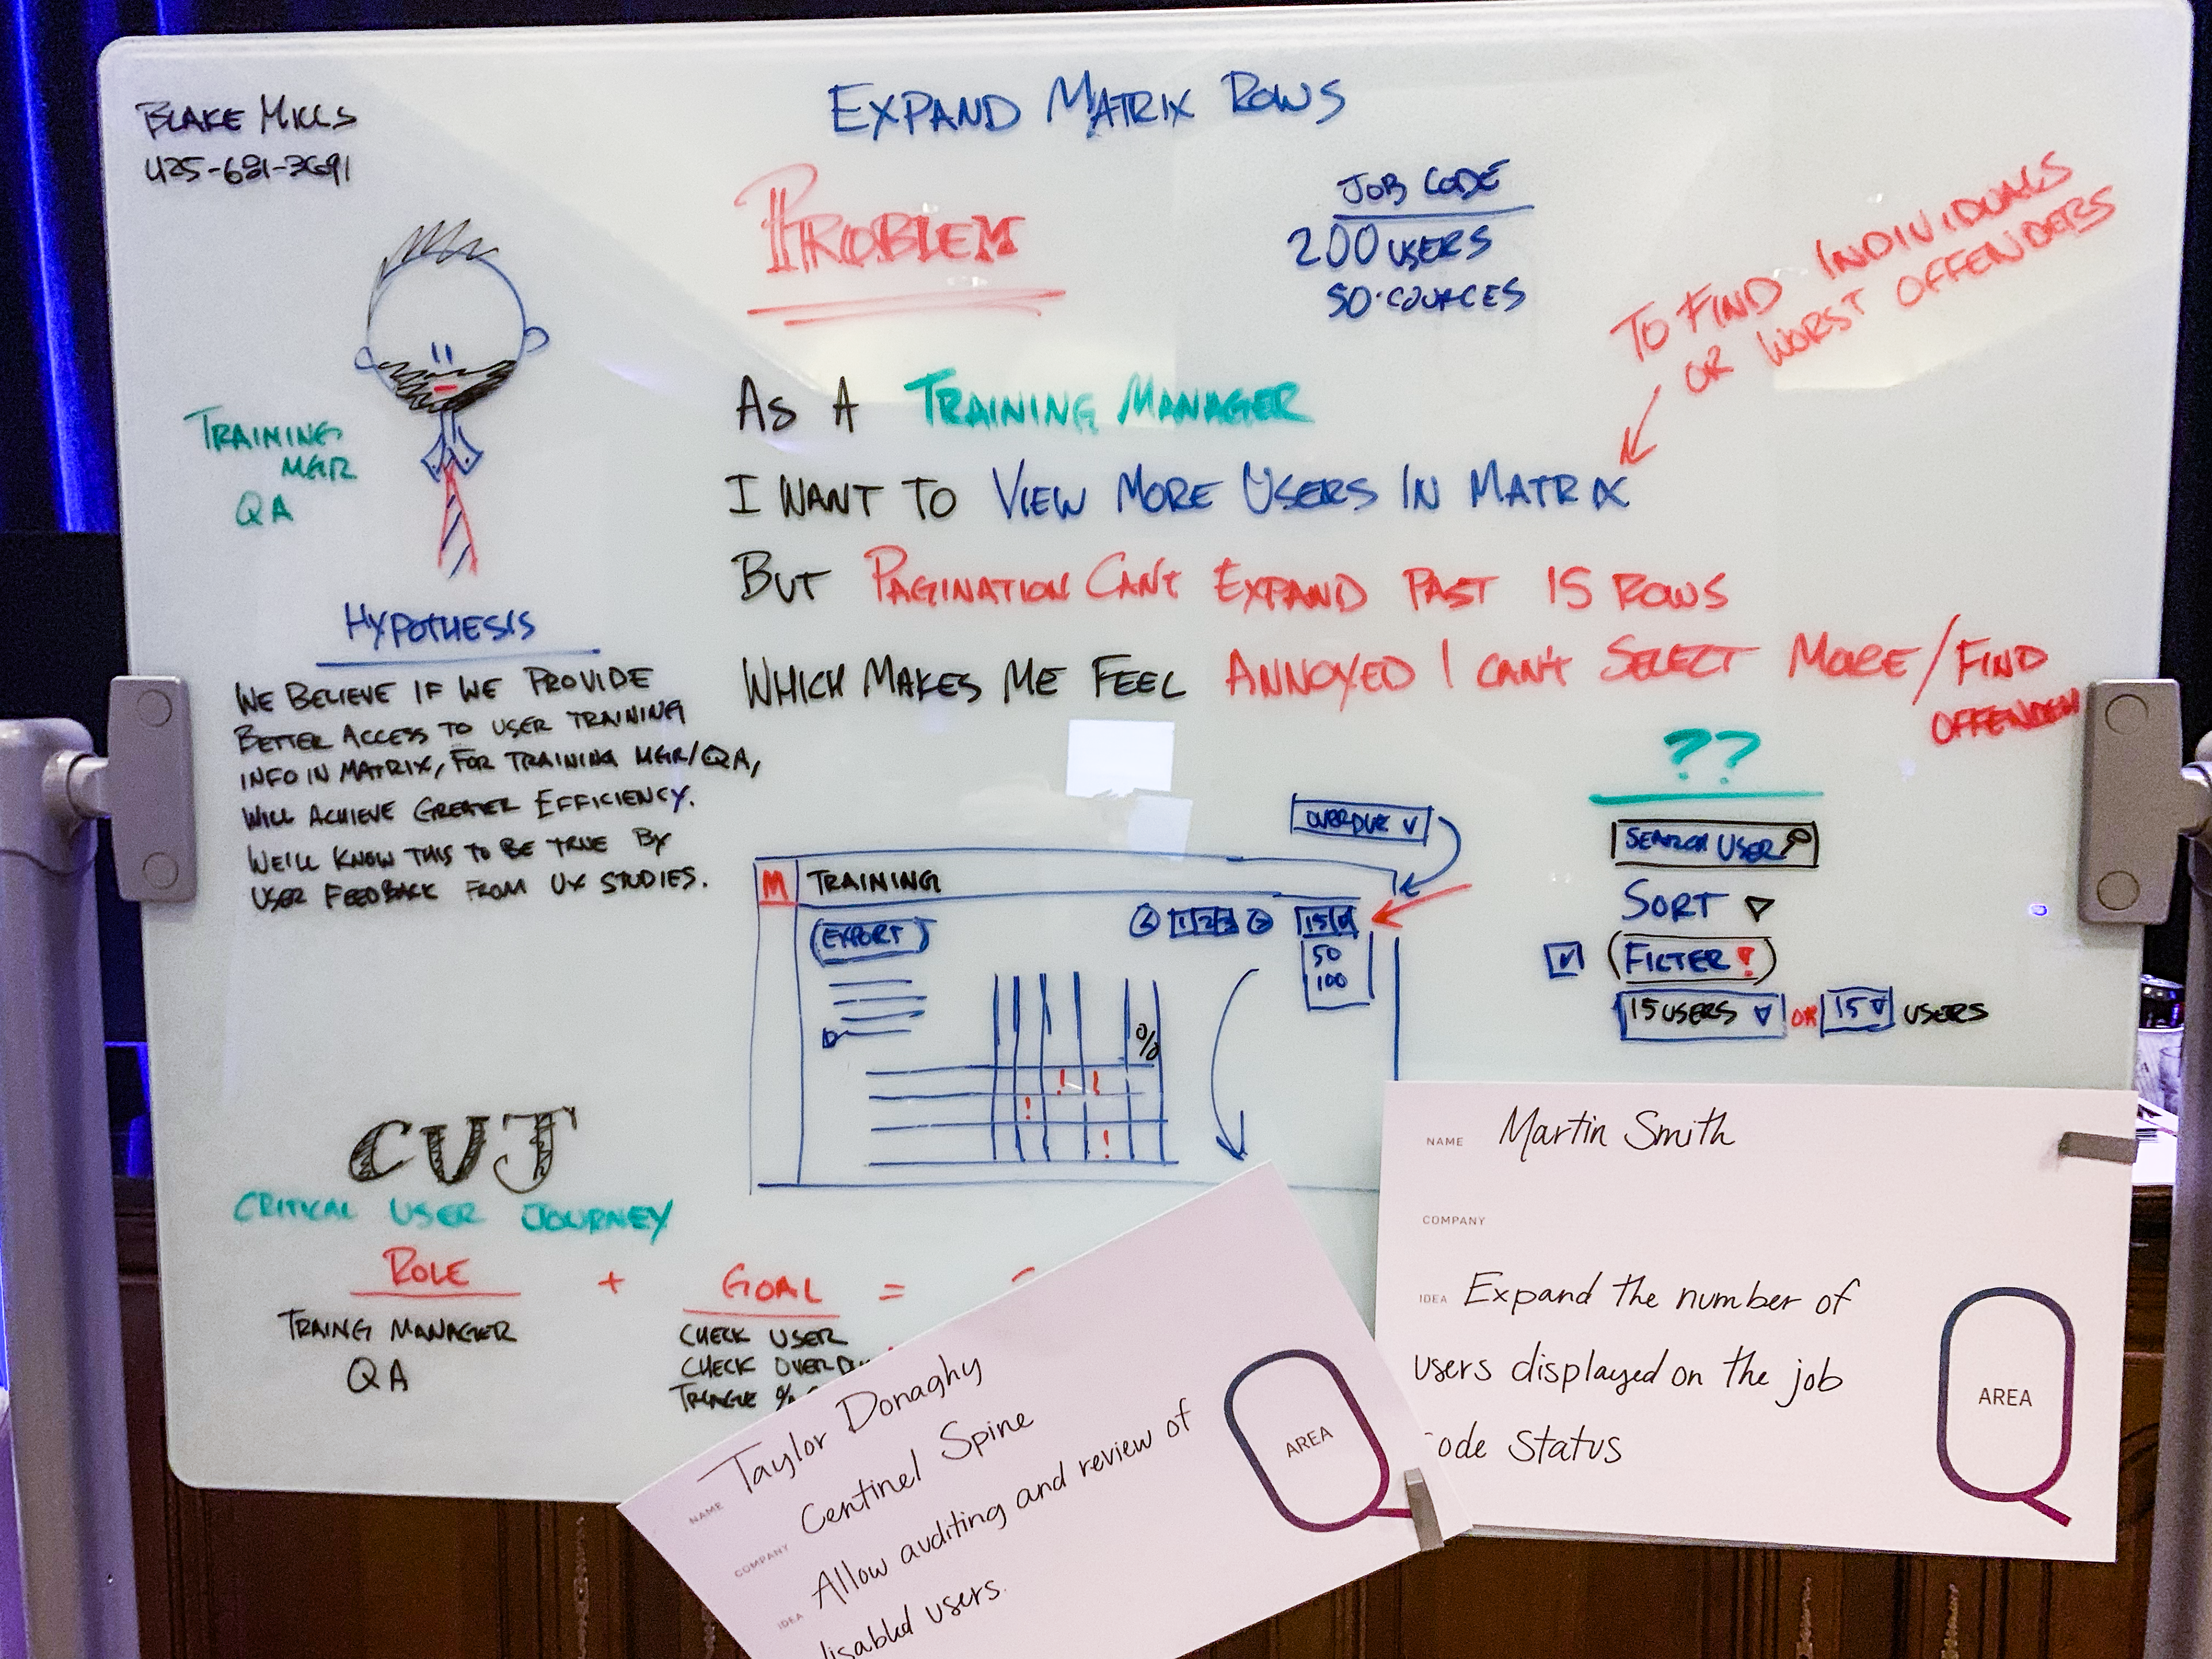 EXPAND MATRIX ROWS
BLAKE MILLS
PROBLEM
JOB CODE
200 USERS
50 COURCES
TO FIND INDIVIDUALS
OR WORST OFFENDERS
AS A TRAINING MANAGER
I WANT TO VIEW MORE USERS IN MATRIX
BUT PAGINATION CAN'T EXPAND PAST 15 ROWS
WHICH MAKES ME FEEL ANNOYED I CAN'T SELECT MORE/FIND
OFFENDER
TRAINING
MGR
QA
HYPOTHESIS
WE BELIEVE IF WE PROVIDE
BETTER ACCESS TO USER TRAINING
INFO IN MATRIX, FOR TRAINING MGR/QA,
WILL ACHIEVE GREATER EFFICIENCY.
WE'LL KNOW THIS TO BE TRUE BY
USER FEEDBACK FROM UX STUDIES.
OVERDUE
M TRAINING
EXPORT
1 2 3
15
50
100
%
! !
!
!
??
SEARCH USER
SORT
FILTER !
15 USERS OR 15 USERS
CUJ
CRITICAL USER JOURNEY
ROLE + GOAL =
TRAING MANAGER
QA
CHECK USER
CHECK OVERDU
%
NAME Martin Smith
COMPANY
IDEA Expand the number of
users displayed on the job
ode Status
AREA
NAME Taylor Donaghy
COMPANY Centinel Spine
IDEA Allow auditing and review of
disabled users.
AREA